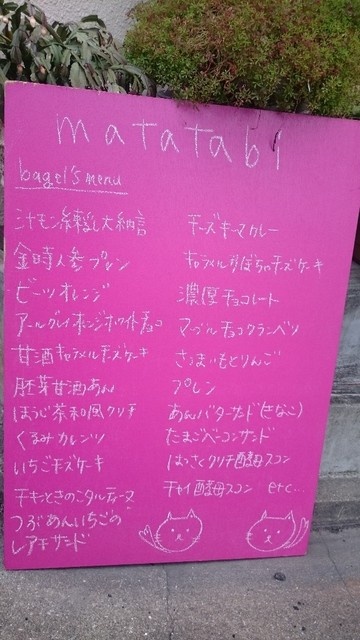 matatabi
bagel's menu
金時人参プリン
ビーツオレンジ
アールグレイオレンジホワイトチョコ
甘酒キャラメルチーズケーキ
胚芽甘酒あん
ほうじ茶和風クリチ
くるみカレンツ
いちごチーズケーキ
チキンときのこタルティーヌ
つぶあんいちごの
レアチーズサンド
チーズキーマカレー
キャラメルかぼちゃチーズケーキ
濃厚チョコレート
マーブルチョコクランベリー
さつまいもとりんご
プレーン
あんバターサンド(きなこ)
たまごベーコンサンド
はっさくクリチ酵母スコン
チャイ酵母スコン etc...